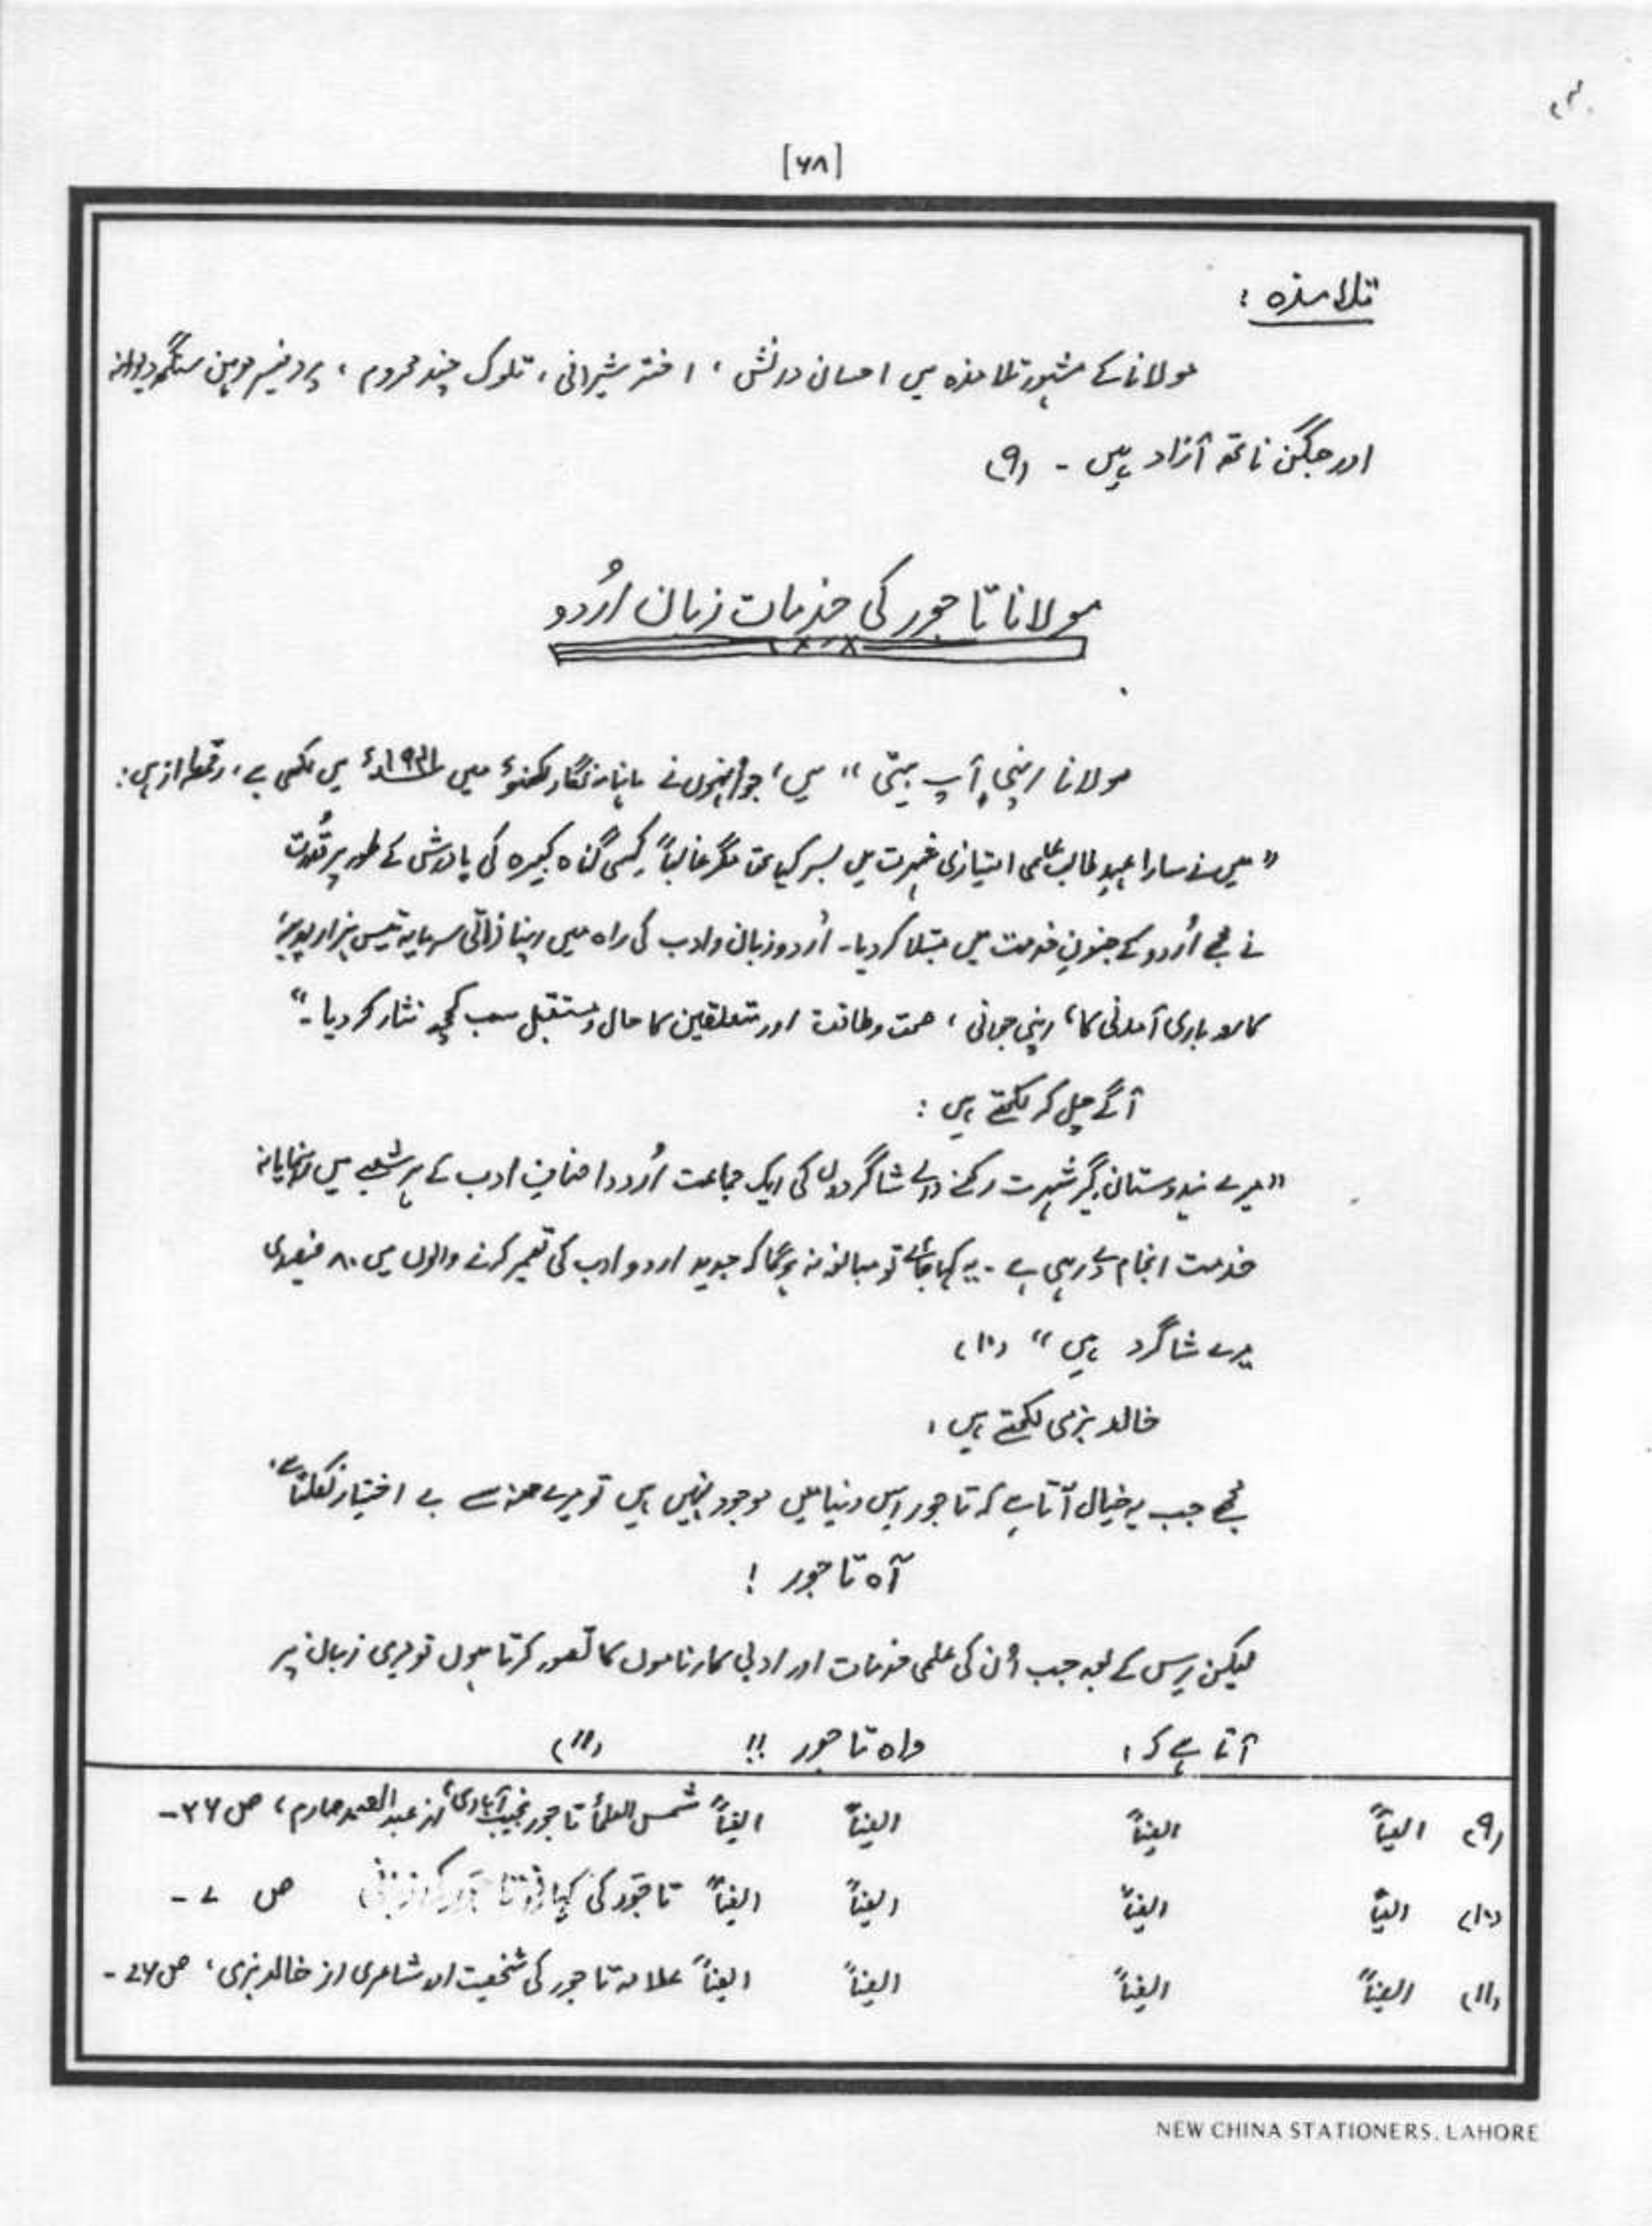 [۶۸]
تلامذہ :
مولانا کے مشہور تلامذہ میں احسان دانش ، اختر شیرانی ، تلوک چند محروم ، پروفیسر موہن سنگھ دیوانہ
اور جگن ناتھ آزاد ہیں - (۹)
مولانا تاجور کی خدمات زبان اُردو
مولانا اپنی آپ بیتی " میں ، جو اُنہوں نے ماہنامہ نگار لکھنؤ میں میں لکھی ہے ، رقمطراز ہیں :
" میں نے سارا عہدِ طالب علمی امتیازی شہرت میں بسر کیا تھا مگر غالباً کِسی گناہ کبیرہ کی پاداش کے طور پر قُدرت
نے مجھے اُردو کے جنونِ خدمت میں مبتلا کر دیا - اُردو زبان و ادب کی راہ میں اپنا ذاتی سرمایہ تیس ہزار روپیہ
کاروباری آمدنی کا ، اپنی جوانی ، صحت و طاقت اور متعلقین کا حال و مستقبل سب کچھ نثار کر دیا - "
آگے چل کر لکھتے ہیں :
" میرے ہندوستان گیر شہرت رکھنے والے شاگردوں کی ایک جماعت اُردو اصنافِ ادب کے ہر شعبے میں رہنمایانہ
خدمت انجام دے رہی ہے - یہ کہا جائے تو مبالغہ نہ ہوگا کہ جدید اردو ادب کی تعمیر کرنے والوں میں ۸۰ فیصدی
میرے شاگرد ہیں " (۱۰)
خالد بزمی لکھتے ہیں :
مجھے جب یہ خیال آتا ہے کہ تاجور اِس دنیا میں موجود نہیں ہیں تو میرے منہ سے بے اختیار نکلتا ہے :
آہ تاجور !
لیکن اِس کے بعد جب اُن کی علمی خدمات اور ادبی کارناموں کا تصور کرتا ہوں تو میری زبان پر
آتا ہے کہ : واہ تاجور !! (۱۱)
(۹) ایضاً ایضاً ایضاً ایضاً شمس العلمأ تاجور نجیب آبادی ، از عبدالصمد صارم ، ص ۳۶ -
(۱۰) ایضاً ایضاً ایضاً ایضاً تاجور کی کہانی ص ۷ -
(۱۱) ایضاً ایضاً ایضاً ایضاً علامہ تاجور کی شخصیت اور شاعری از خالد بزمی ، ص ۷۶ -
NEW CHINA STATIONERS, LAHORE